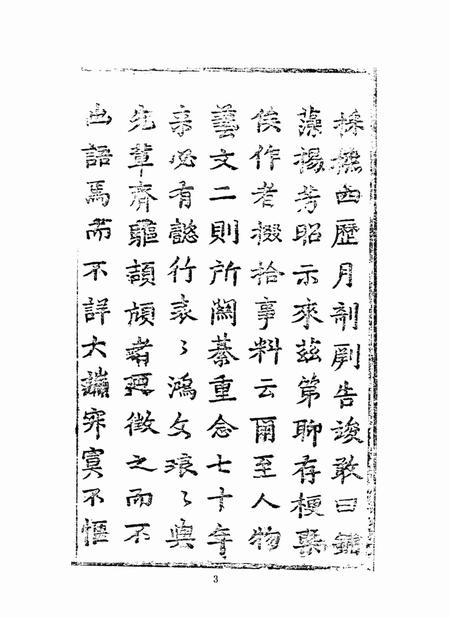 採摭四歷月剞劂告竣敢曰鋪
藻揚芳昭示來茲第聊存梗槩
俟作者掇拾事料云爾至人物
藝文二則所關綦重念七十年
來必有懿行表〻鴻文琅〻與
先軰齊驅頡頏者亟徵之而不
出語焉而不詳大寂寞不惬
3